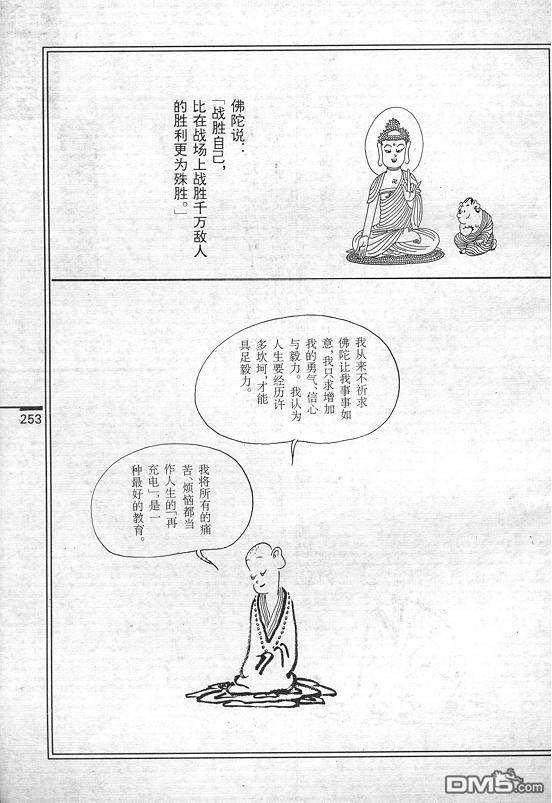 佛陀说：
「战胜自己，
比在战场上战胜千万敌人
的胜利更为殊胜。」
我从来不祈求
佛陀让我事事如
意，我只求增加
我的勇气、信心
与毅力。我认为
人生要经历许
多坎坷，才能
具足毅力。
我将所有的痛
苦、烦恼都当
作人生的「再
充电」，是一
种最好的教育。
253
DM5.com